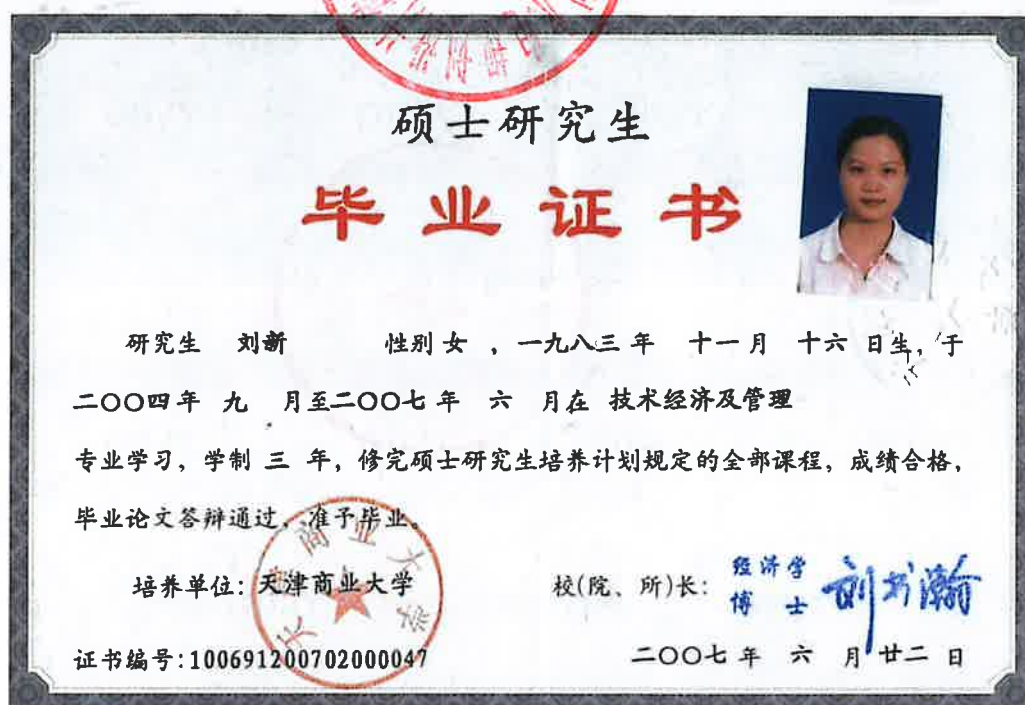 硕士研究生
毕业证书
研究生 刘新 性别 女 ，一九八三 年 十一 月 十六 日生，于
二〇〇四年 九 月至二〇〇七 年 六 月在 技术经济及管理
专业学习，学制 三 年，修完硕士研究生培养计划规定的全部课程，成绩合格，
毕业论文答辩通过，准予毕业。
培养单位：天津商业大学
校(院、所)长：
经济学
博士
刘书瀚
天津商业大学
证书编号：100691200702000047
二〇〇七 年 六 月 廿二 日